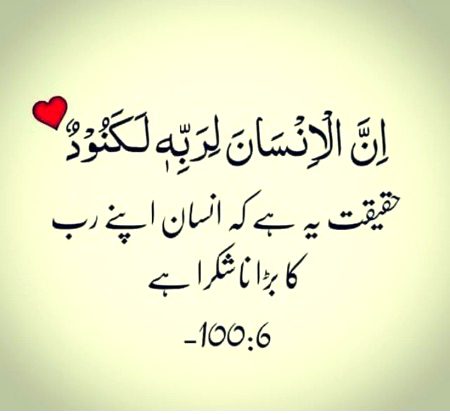 اِنَّ الْاِنْسَانَ لِرَبِّهٖ لَكَنُوْدٌ
حقیقت یہ ہے کہ انسان اپنے رب
کا بڑا ناشکرا ہے
-100:6